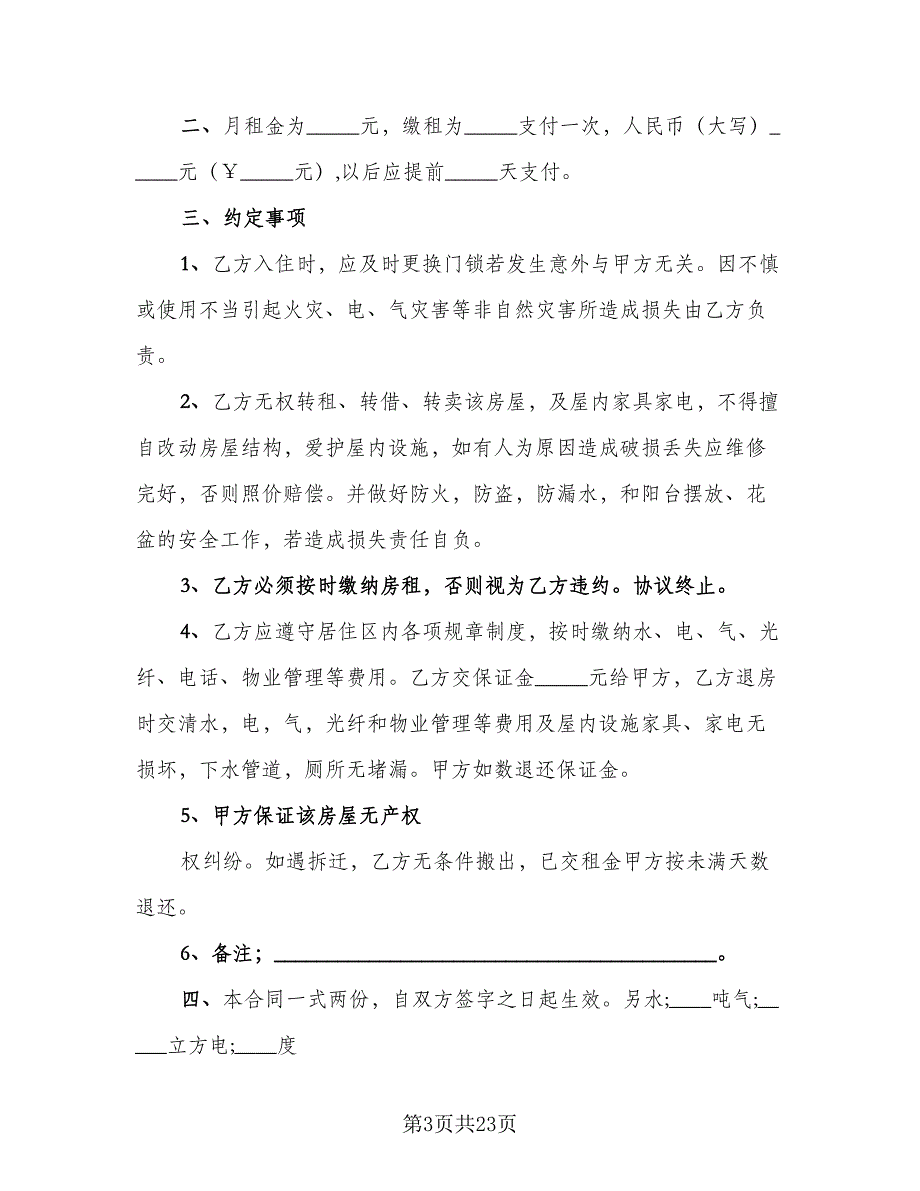 二、月租金为_____元，缴租为_____支付一次，人民币（大写）_
____元（￥_____元）,以后应提前_____天支付。
三、约定事项
1、乙方入住时，应及时更换门锁若发生意外与甲方无关。因不慎
或使用不当引起火灾、电、气灾害等非自然灾害所造成损失由乙方负
责。
2、乙方无权转租、转借、转卖该房屋，及屋内家具家电，不得擅
自改动房屋结构，爱护屋内设施，如有人为原因造成破损丢失应维修
完好，否则照价赔偿。并做好防火，防盗，防漏水，和阳台摆放、花
盆的安全工作，若造成损失责任自负。
3、乙方必须按时缴纳房租，否则视为乙方违约。协议终止。
4、乙方应遵守居住区内各项规章制度，按时缴纳水、电、气、光
纤、电话、物业管理等费用。乙方交保证金_____元给甲方，乙方退房
时交清水，电，气，光纤和物业管理等费用及屋内设施家具、家电无
损坏，下水管道，厕所无堵漏。甲方如数退还保证金。
5、甲方保证该房屋无产权
权纠纷。如遇拆迁，乙方无条件搬出，已交租金甲方按未满天数
退还。
6、备注；__________________________________________。
四、本合同一式两份，自双方签字之日起生效。另水;____吨气;__
___立方电;____度
第3页共23页